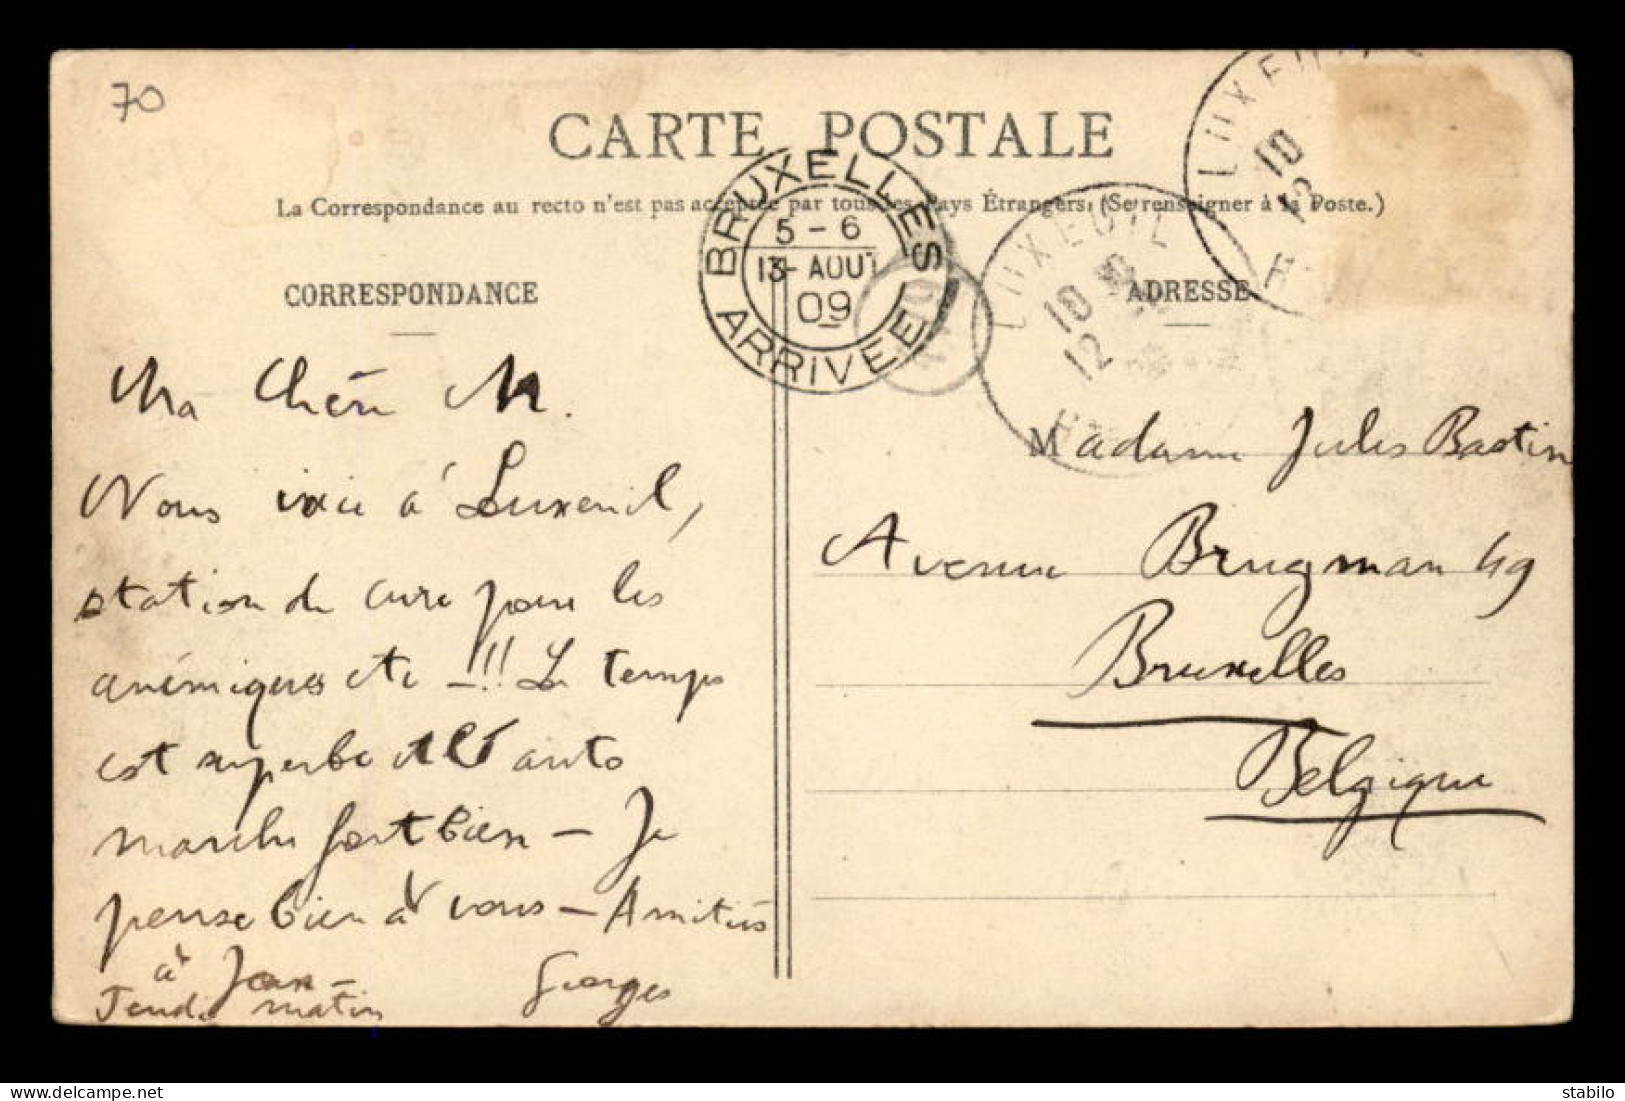 70
CARTE POSTALE
La Correspondance au recto n'est pas acceptée par tous les Pays Étrangers. (Se renseigner à la Poste.)
BRUXELLES
5-6
13-AOUT
09
ARRIVEE
LUXEUIL
10
12
LUXEUIL
10
12
CORRESPONDANCE
ADRESSE
Ma Chère M.
Nous ici à Luxeuil,
station de cure pour les
anémiques etc -!!! Le temps
est superbe et l'auto
marche fort bien - Je
pense bien à vous - Amitiés
à Jean - Georges
Jeudi matin
Madame Jules Bastin
Avenue Brugman 49
Bruxelles
Belgique
stabilo